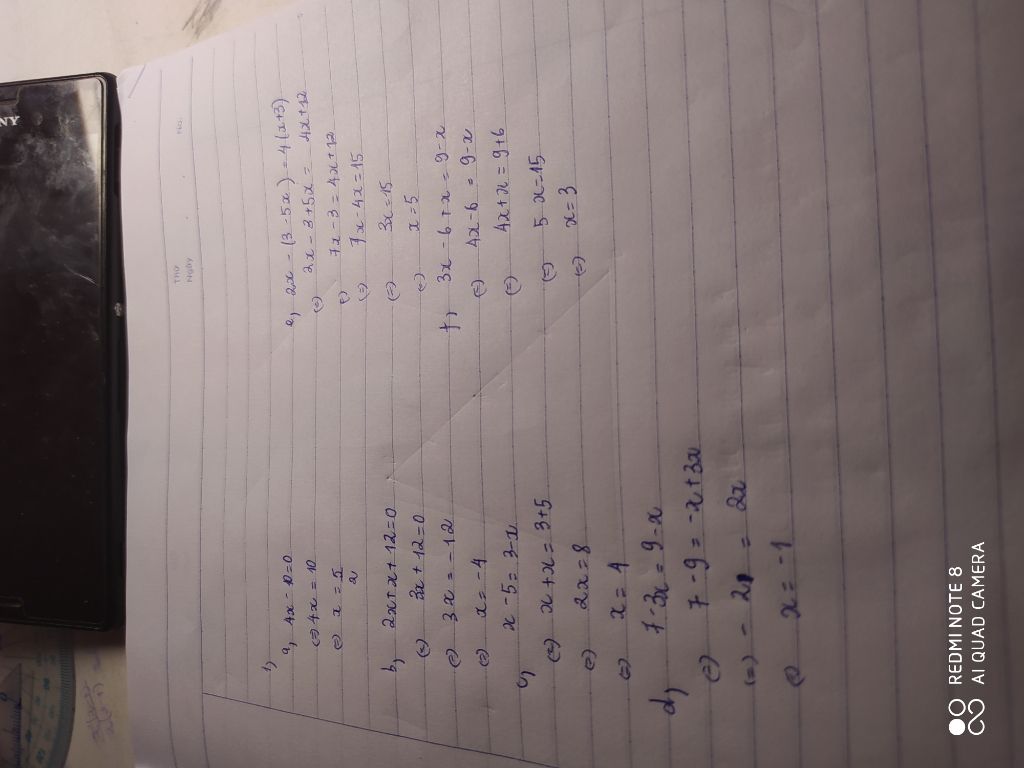 NY
Thứ
Ngày
No.
1)
a, 4x - 10 = 0
(=) 4x = 10
(=) x = 5/2
b, 2x + x + 12 = 0
(=) 3x + 12 = 0
(=) 3x = -12
(=) x = -4
c, x - 5 = 3 - x
(=) x + x = 3 + 5
(=) 2x = 8
(=) x = 4
d, 7 - 3x = 9 - x
(=) 7 - 9 = -x + 3x
(=) -2 = 2x
(=) x = -1
e, 2x - (3 - 5x) = 4(x+3)
(=) 2x - 3 + 5x = 4x + 12
(=) 7x - 3 = 4x + 12
(=) 7x - 4x = 15
(=) 3x = 15
(=) x = 5
f, 3x - 6 + x = 9 - x
(=) 4x - 6 = 9 - x
(=) 4x + x = 9 + 6
(=) 5x = 15
(=) x = 3
REDMI NOTE 8
AI QUAD CAMERA